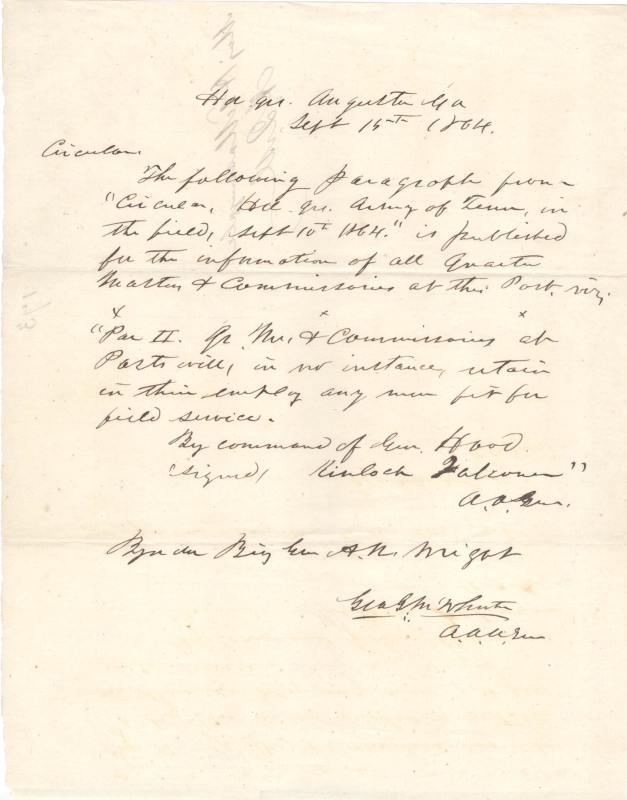 Hd. qrs. Augusta Ga
Sept 15th 1864.
Circular
The following Paragraph from
"Circular, Hd. qrs. Army of Tenn, in
the field, Sept 10th 1864." is published
for the information of all Quarter
Masters & Commissaries at this Post. viz;
x x x
"Par II. Qr. Mrs. & Commissaries at
Posts will, in no instance, retain
in their employ any men fit for
field service.
By command of Gen. Hood
(signed) Kinloch Falconer"
A.A.Gen.
By order Brig Gen A. R. Wright
Geo
A.A.A.Gen